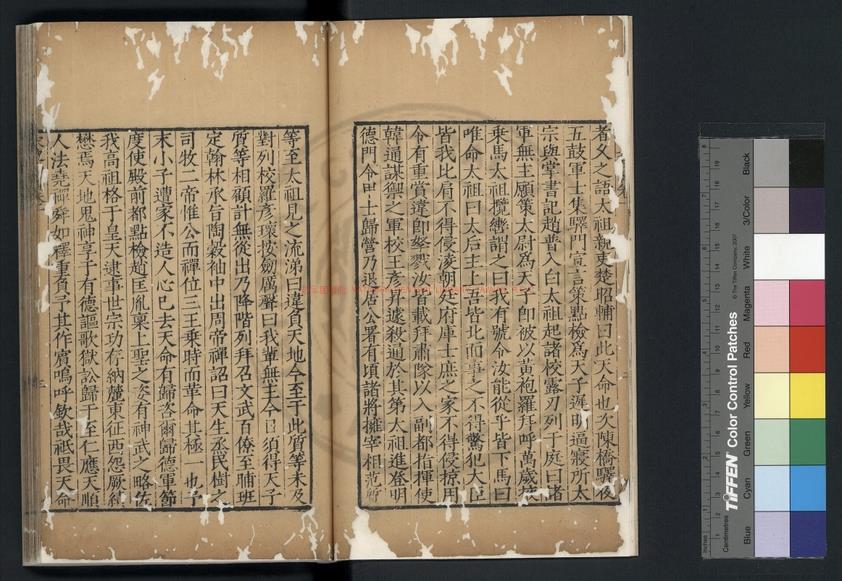 者久之語太祖親吏楚昭輔曰此天命也次陳橋驛夜
五鼓軍士集驛門宣言策點檢為天子遲明逼寢所太
宗與掌書記趙普入白太祖起諸校露刃列于庭曰諸
軍無主願策太尉為天子即被以黃袍羅拜呼萬歲挾
乘馬太祖攬轡謂之曰我有號令汝能從乎皆下馬曰
唯命太祖曰太后主上吾皆北而事之不得驚犯大臣
皆我比肩不得侵淩朝廷府庫士庶之家不得侵掠用
令有重賞違即孥戮汝皆載拜肅隊以入副都指揮使
韓通謀禦之軍校王彥昇遽殺通於其第太祖進登明
德門令甲士歸營乃退居公署有頃諸將擁宰相范質
等至太祖見之流涕曰違負天地今至于此質等未及
對列校羅彥瓌按劒厲聲曰我軰無主今日須得天子
質等相顧計無從出乃降階列拜召文武百僚至晡班
定翰林承旨陶穀袖中出周帝禪詔曰天生烝民樹之
司牧二帝惟公而禪位三王乘時而革命其極一也予
末小子遭家不造人心已去天命有歸咨爾歸德軍節
度使殿前都點檢趙匡胤稟上聖之姿有神武之略佐
我高祖格于皇天逮事世宗功存納麓東征西怨厥績
懋焉天地鬼神享于有德謳歌獄訟歸于至仁應天順
人法堯禪舜如釋重負予其作賓嗚呼欽哉祗畏天命
TIFFEN Color Control Patches
© The Tiffen Company, 2007
Inches
Centimetres
Blue
Cyan
Green
Yellow
Red
Magenta
White
3/Color
Black